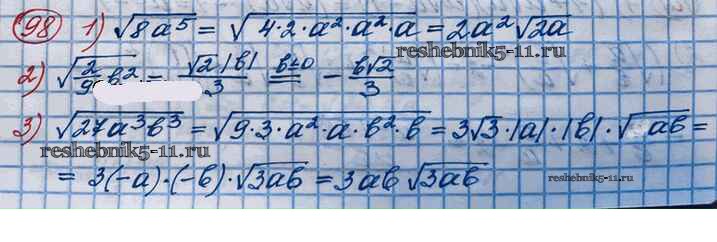 98 1) √8a⁵ = √4·2·a²·a²·a = 2a²√2a
reshebnik5-11.ru
2) √2/9 b² = √2|b|/3 = b≤0 - b√2/3
3) √27a³b³ = √9·3·a²·a·b²·b = 3√3·|a|·|b|·√ab =
reshebnik5-11.ru
= 3(-a)·(-b)·√3ab = 3ab√3ab
reshebnik5-11.ru